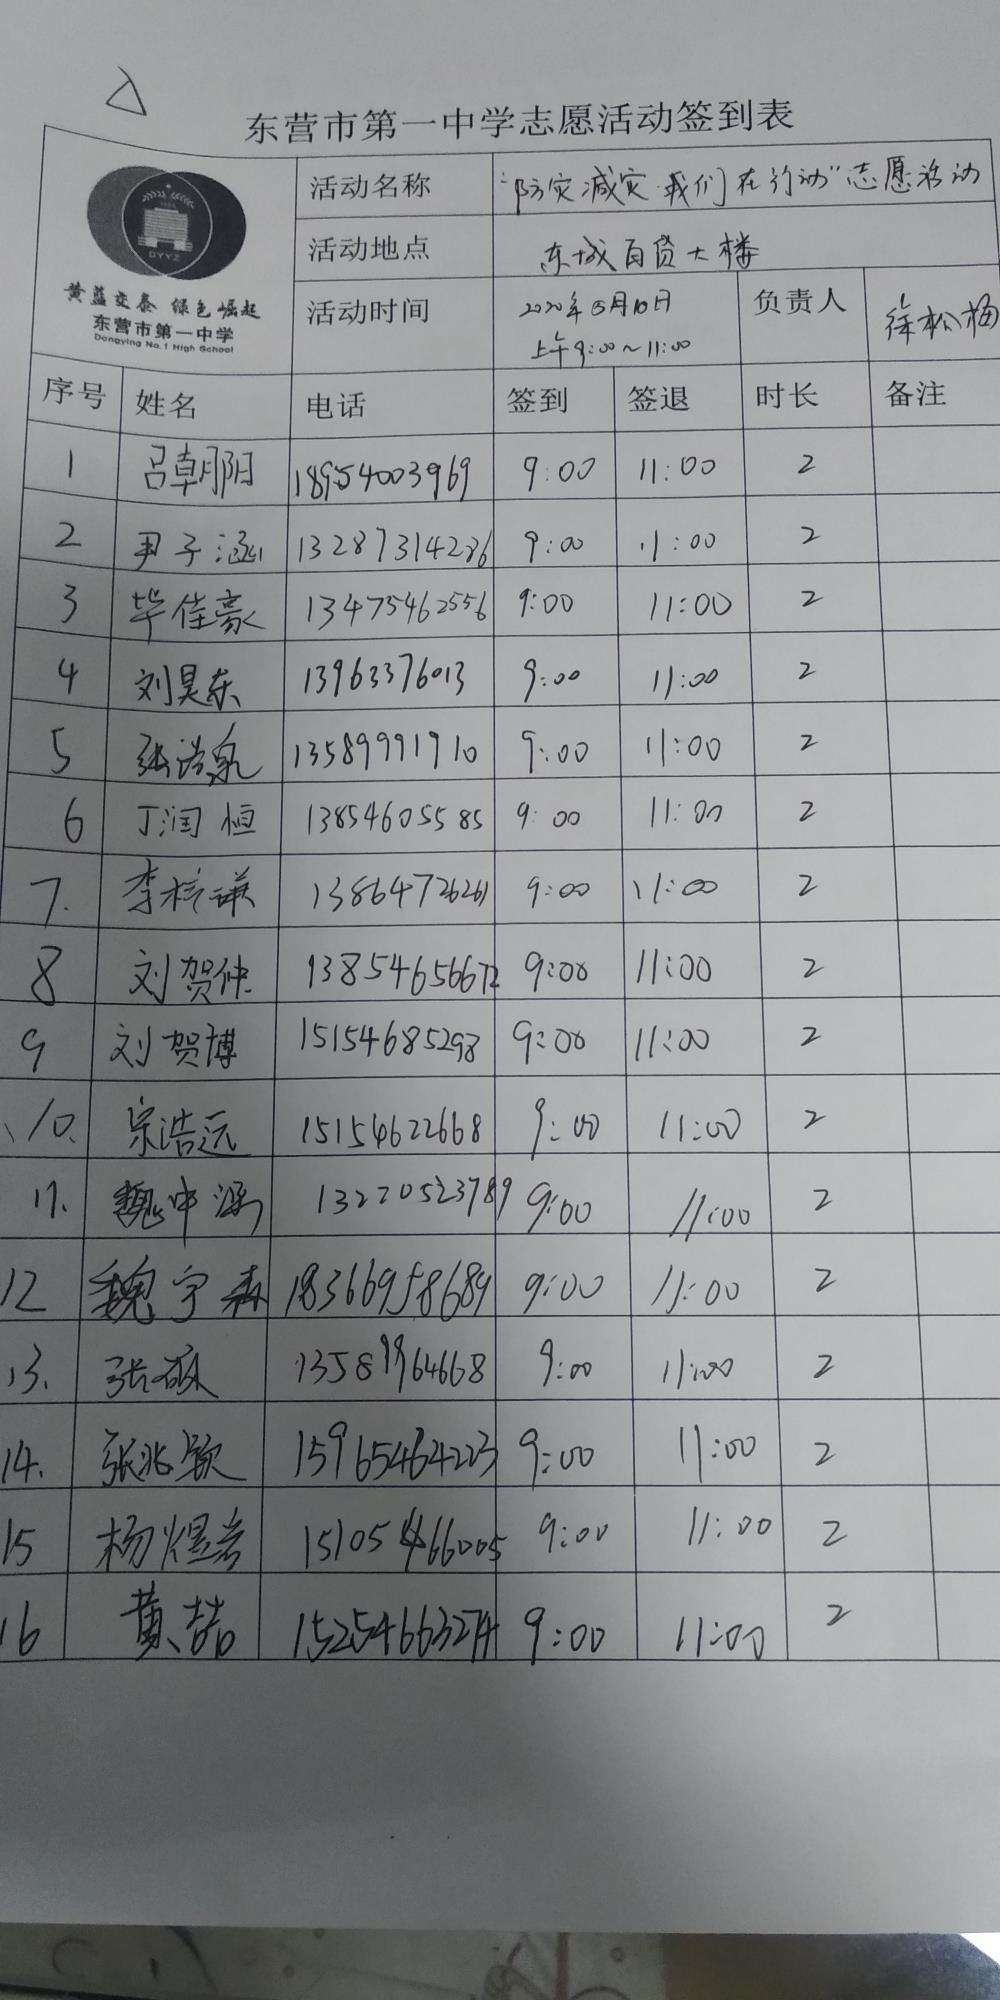 东营市第一中学志愿活动签到表
DYYZ
黄蓝交泰 绿色崛起
东营市第一中学
Dongying No.1 High School
活动名称 "防灾减灾 我们在行动"志愿活动
活动地点 东城百货大楼
活动时间 2020年5月10日 上午9:00~11:00 负责人 徐松梅
序号 姓名 电话 签到 签退 时长 备注
1 吕朝阳 18954003969 9:00 11:00 2
2 尹子涵 13287314286 9:00 11:00 2
3 毕佳豪 13475462556 9:00 11:00 2
4 刘昊东 13963376013 9:00 11:00 2
5 张浩泉 13589991910 9:00 11:00 2
6 丁润恒 13854605585 9:00 11:00 2
7. 李梓谦 13864726261 9:00 11:00 2
8 刘贺仲 13854656672 9:00 11:00 2
9 刘贺博 15154685298 9:00 11:00 2
10. 宗浩远 15154622668 9:00 11:00 2
11. 魏申涵 13220523789 9:00 11:00 2
12 魏宇森 18366958689 9:00 11:00 2
13. 张硕 13589964668 9:00 11:00 2
14. 张兆欽 15965464223 9:00 11:00 2
15 杨煜 15105466005 9:00 11:00 2
16 黄喆 15254663274 9:00 11:00 2